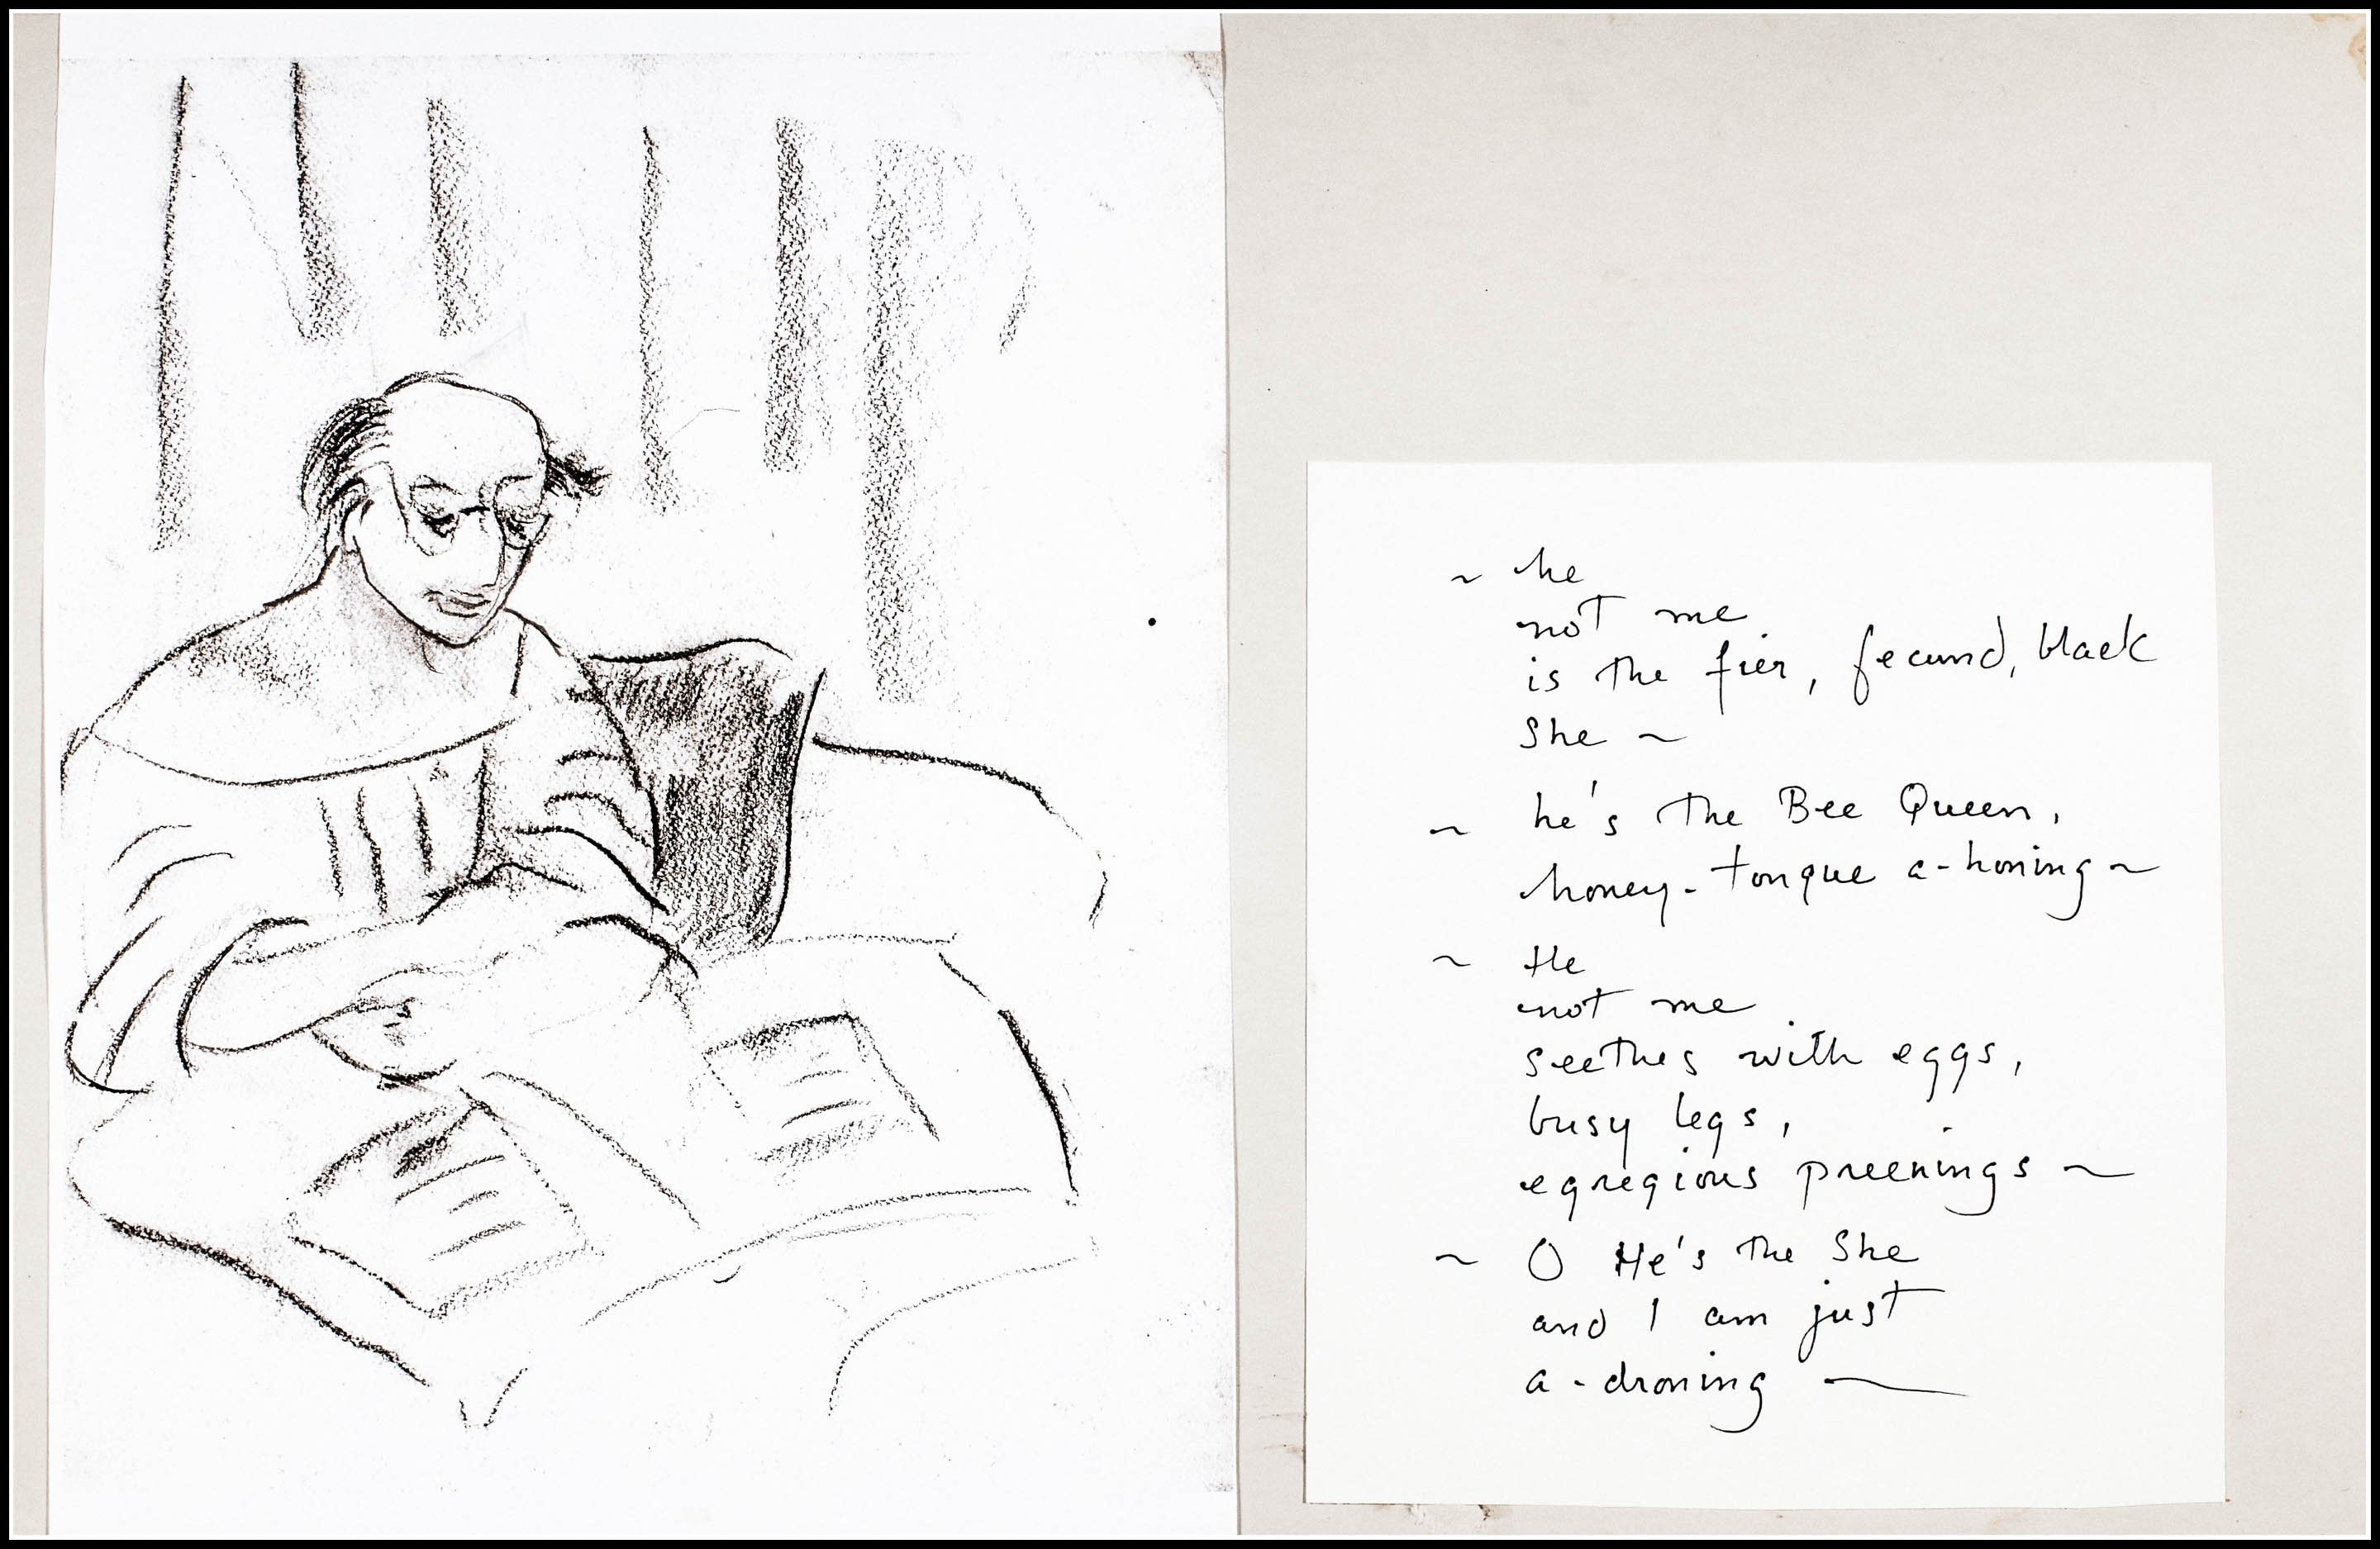 ~ he
not me
is the fier, fecund, black
She ~
~ he's the Bee Queen,
honey-tongue a-honing ~
~ He
not me
seethes with eggs,
busy legs,
egregious preenings ~
~ O He's the She
and I am just
a-droning ~